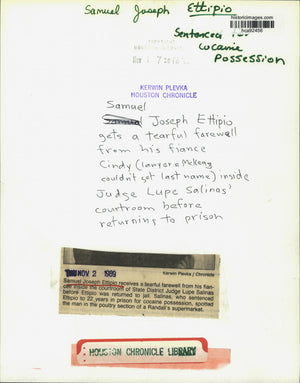 Samuel Joseph Ettipio
historicimages.com
hca92456
Sentenced for
Cocaine
Possession
KERWIN PLEVKA
HOUSTON CHRONICLE
Samuel
Joseph Ettipio
gets a tearful farewell
from his fiance
Cindy (lawyer
couldn't get last name) inside
Judge Lupe Salinas'
courtroom before
returning to prison
Kerwin Plevka / Chronicle
NOV 2 1989
Samuel Joseph Ettipio receives a tearful farewell from his fian-
cee inside the courtroom of State District Judge Lupe Salinas
before Ettipio was returned to jail. Salinas, who sentenced
Ettipio to 22 years in prison for cocaine possession, spotted
the man in the poultry section of a Randall's supermarket.
HOUSTON CHRONICLE LIBRARY